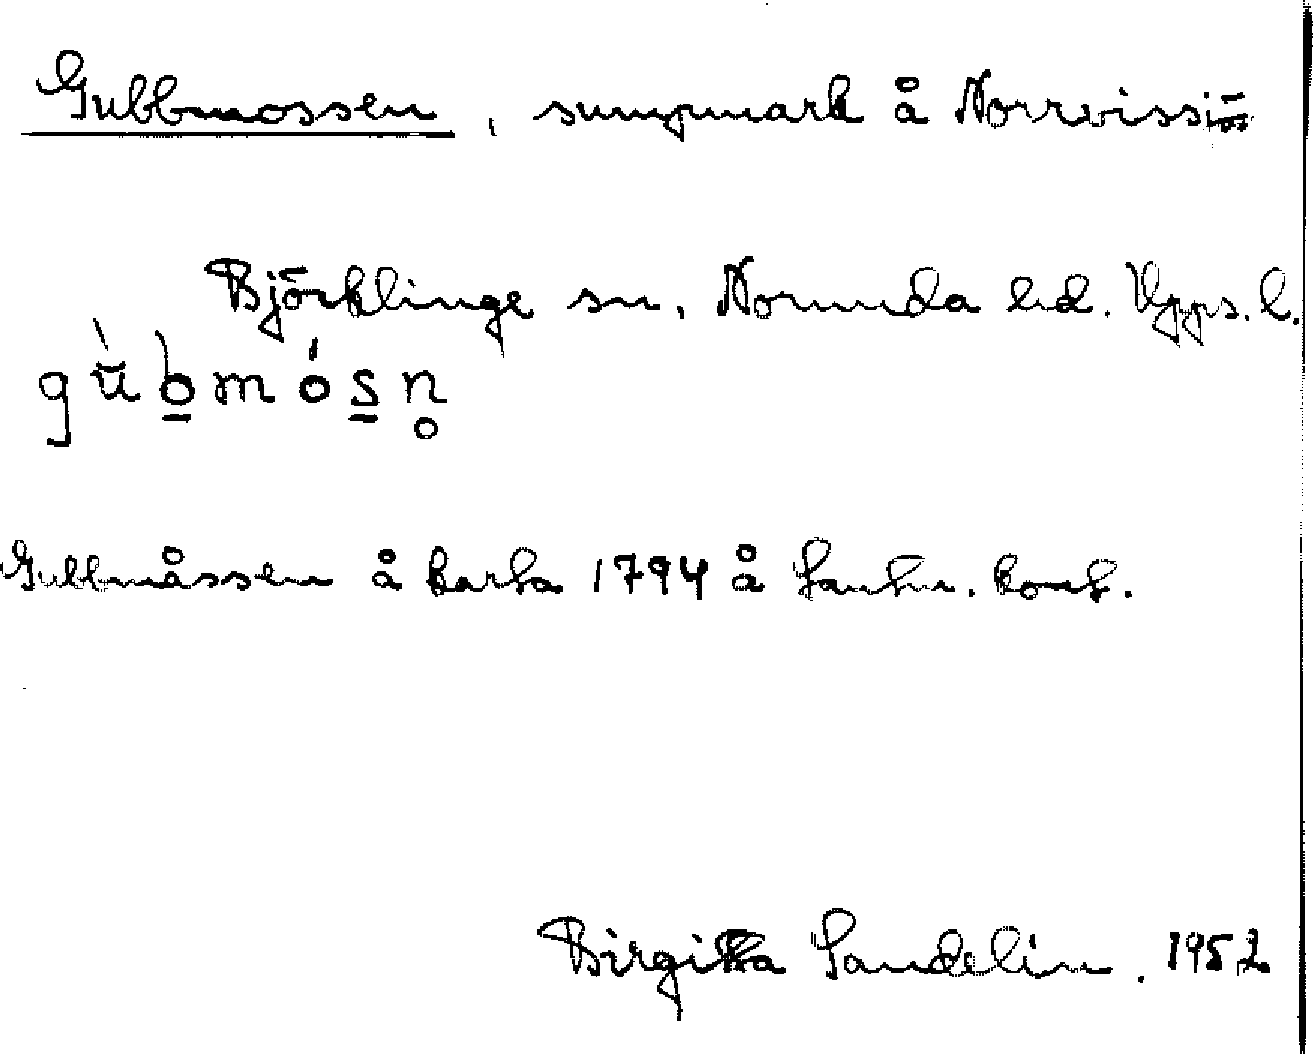 Gubbmossen, sumpmark å Norrvissjö
Björklinge sn, Norunda hd. Upps. l.
gùbmósn̥
Gubbmåssen å karta 1794 å Lantm. kont.
Birgitta Sandelin. 1952